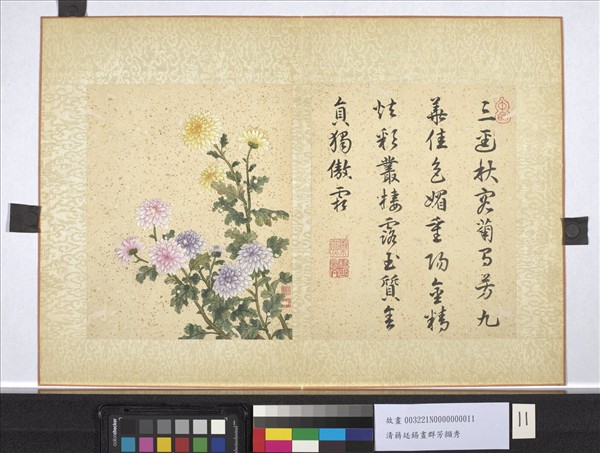 三逕秋容菊有芳九
華佳色媚重陽金精
炫彩叢棲露玉質含
貞獨傲霜
故畫 003221N0000000011
清蔣廷錫畫群芳擷秀
11